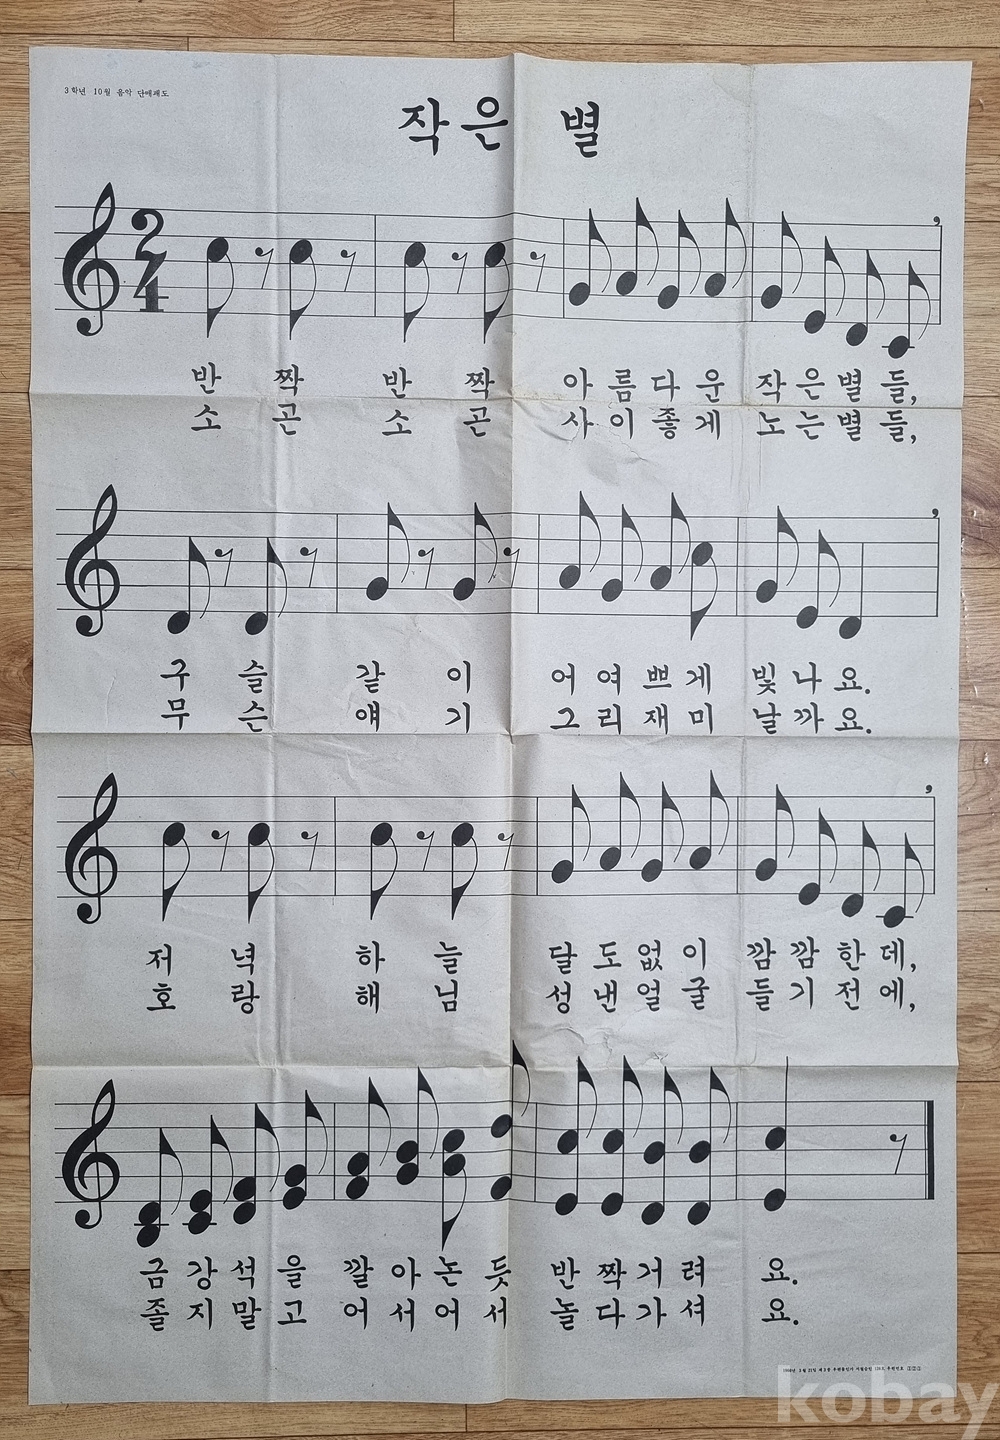 3학년 10월 음악 단매괘도
작은 별
2/4
반 짝 반 짝 아름다운 작은별들,
소 곤 소 곤 사이좋게 노는별들,
구 슬 같 이 어여쁘게 빛나요.
무 슨 얘 기 그리재미 날까요.
저 녁 하 늘 달도없이 깜깜한데,
호 랑 해 님 성낸얼굴 들기전에,
금강석을 깔아논듯 반짝거려 요.
졸지말고 어서어서 놀다가셔 요.
kobay